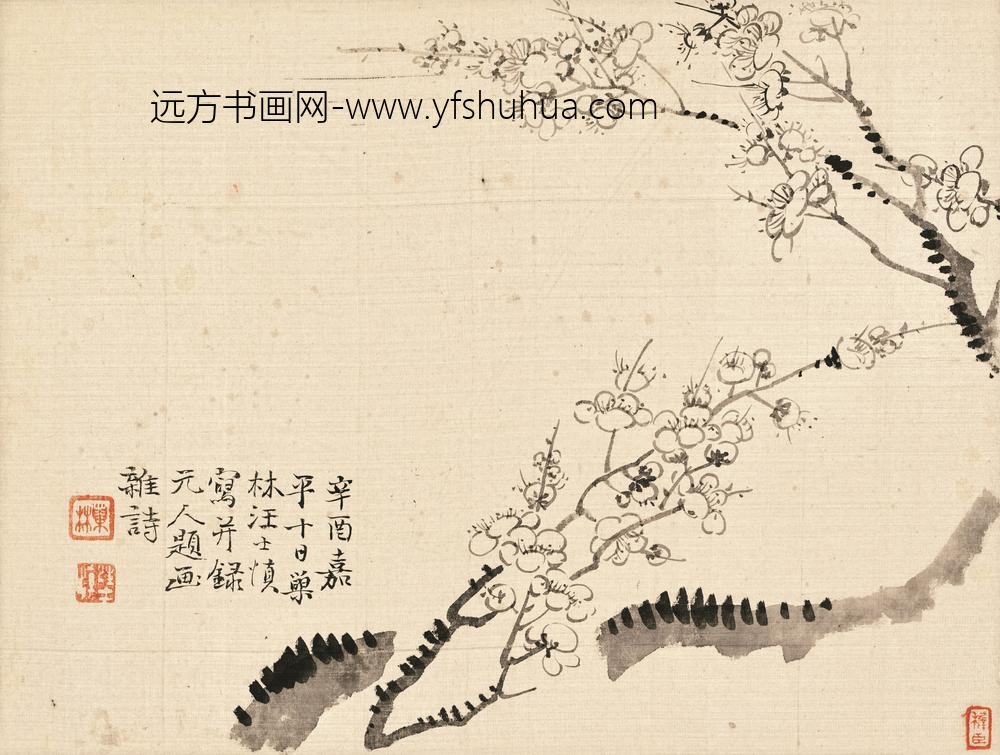 远方书画网-www.yfshuhua.com
辛酉嘉
平十日巢
林汪士慎
寫并録
元人題画
雜詩
巢林